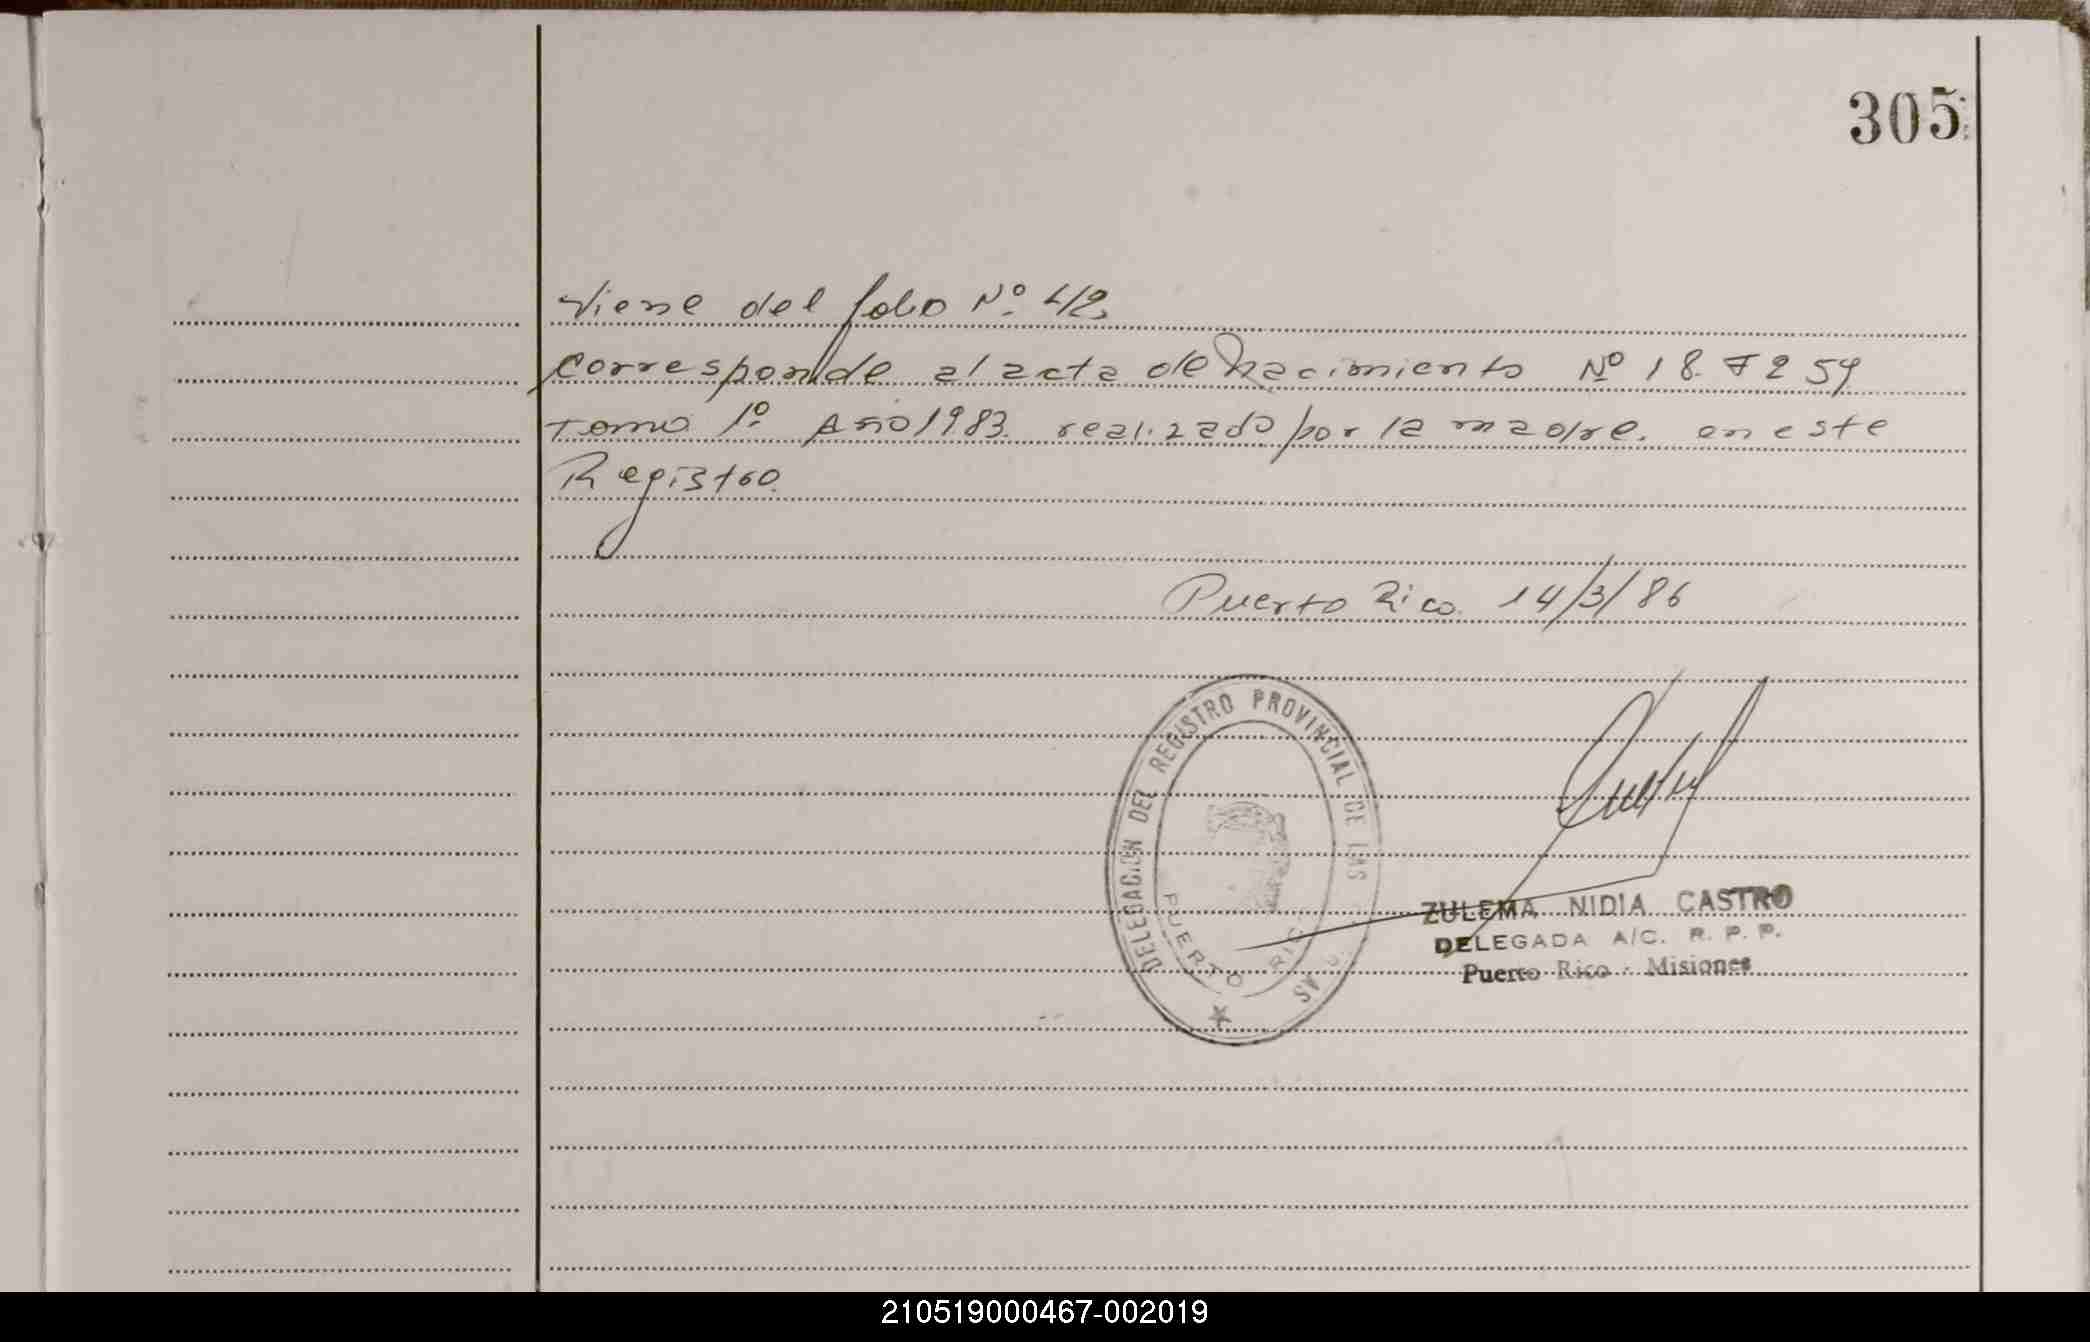 305
Viene del folio Nº 42
Corresponde al acta de Nacimiento Nº 18. F 259
Tomo 1º Año 1983. realizado por la madre. en este
Registro.
Puerto Rico. 14/3/86
DELEGACION DEL REGISTRO PROVINCIAL DE LAS
PUERTO RICO
ZULEMA NIDIA CASTRO
DELEGADA A/C. R. P. P.
Puerto Rico - Misiones
210519000467-002019